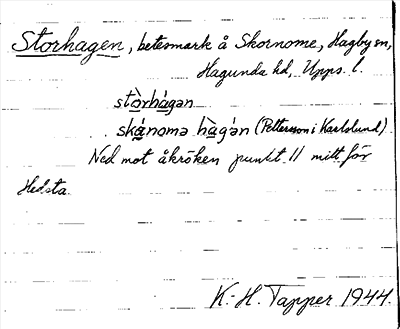 Storhagen, betesmark å Skornome, Hagby sn,
Hagunda hd, Upps. l.
stòrhagən
skánomə hàgən (Pettersson i Karlslund)
Ned mot åkröken punkt 11 mitt för
Hedsta.
K.-H. Tapper 1944.